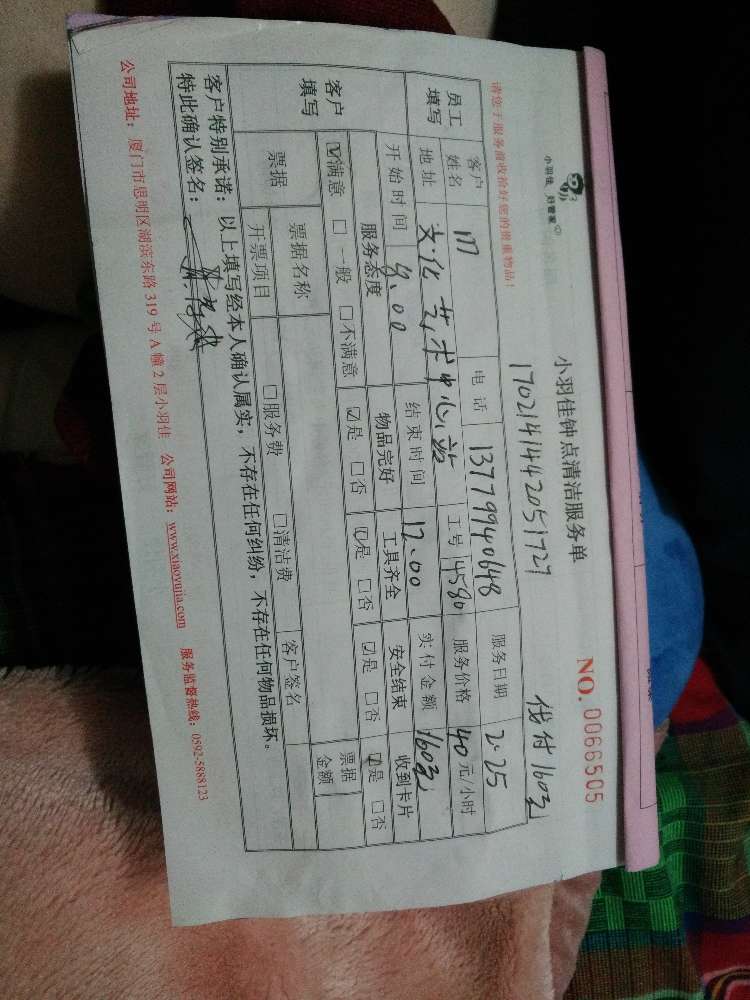 小羽佳 好管家
小羽佳钟点清洁服务单
NO. 0066505
1702141442051727 代付160元
请您于服务前收恰好您的贵重物品！
员工填写 客户姓名 电话 13779940648 服务日期 2.25
地址 文化艺术中心站 工号 4580 服务价格 40元/小时
开始时间 8.00 结束时间 12.00 实付金额 160元
客户填写 服务态度 物品完好 工具齐全 安全结束 收到卡片
☑满意 □一般 □不满意 ☑是 □否 ☑是 □否 ☑是 □否 ☑是 □否
票据 票据名称 票据金额
开票项目 □服务费 □清洁费 客户签名
客户特别承诺：以上填写经本人确认属实，不存在任何纠纷，不存在任何物品损坏。
特此确认签名：
公司地址：厦门市思明区湖滨东路319号A幢2层小羽佳 公司网站：www.xiaoyujia.com 服务监督热线：0592-5888123